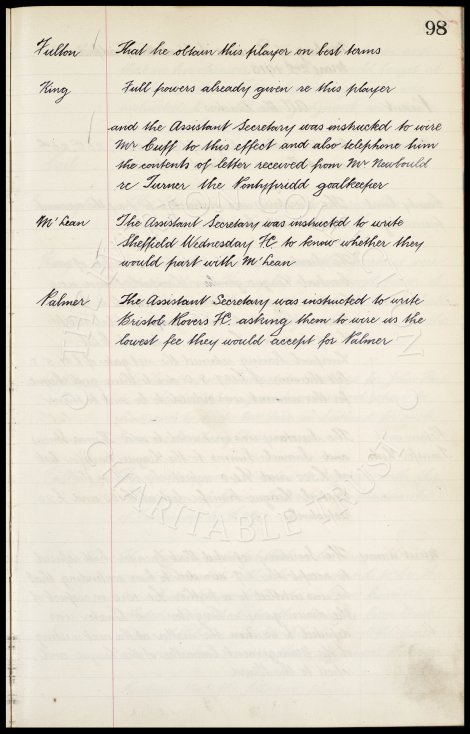 98
Fulton That he obtain this player on best terms
King Full powers already given re this player
and the Assistant Secretary was instructed to wire
Mr Cuff to this effect and also telephone him
the contents of letter received from Mr Newbould
re Turner the Pontypridd goalkeeper
McLean The Assistant Secretary was instructed to write
Sheffield Wednesday FC to know whether they
would part with McLean
Palmer The Assistant Secretary was instructed to write
Bristol Rovers FC. asking them to wire us the
lowest fee they would accept for Palmer
CHARITABLE TRUST